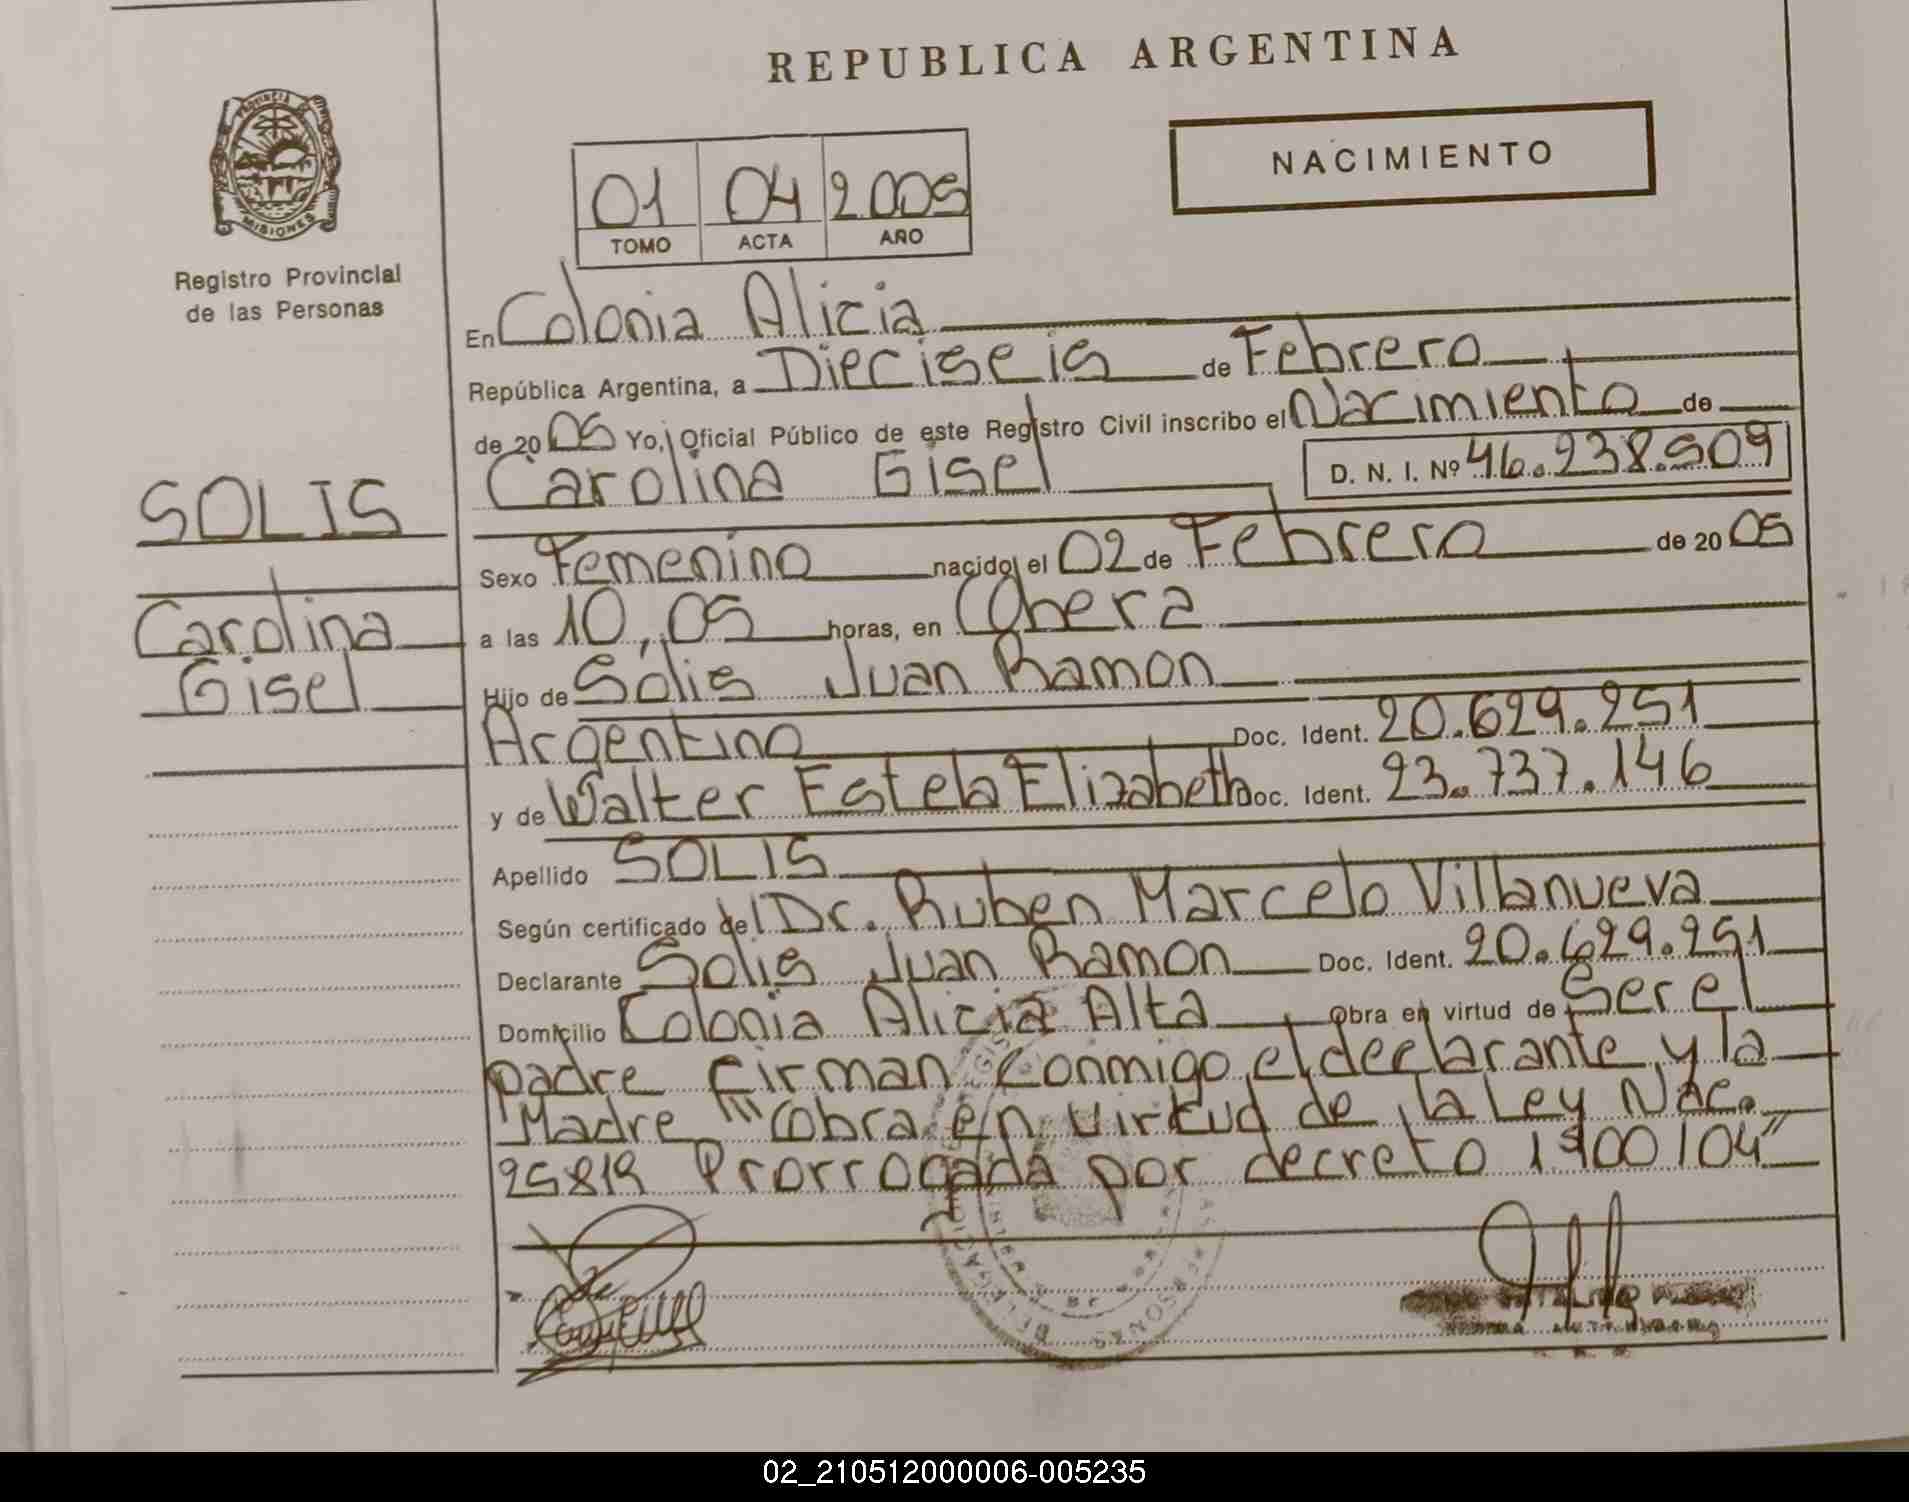 REPUBLICA ARGENTINA
NACIMIENTO
01 04 2005
TOMO ACTA AÑO
PROVINCIA DE
MISIONES
Registro Provincial
de las Personas
SOLIS
Carolina
Gisel
En Colonia Alicia
República Argentina, a Dieciseis de Febrero
de 2005 Yo, Oficial Público de este Registro Civil inscribo el Nacimiento de
Carolina Gisel D. N. I. Nº 46.238.509
Sexo Femenino nacido el 02 de Febrero de 2005
a las 10,05 horas, en Obera
Hijo de Solis Juan Ramon
Argentino Doc. Ident. 20.629.251
y de Walter Estela Elizabeth Doc. Ident. 23.737.146
Apellido SOLIS
Según certificado del Dr. Ruben Marcelo Villanueva
Declarante Solis Juan Ramon Doc. Ident. 20.629.251
Domicilio Colonia Alicia Alta Obra en virtud de Ser el
padre Firman Conmigo el declarante y la
Madre "Obra en virtud de la Ley Nac.
25819 Prorrogada por decreto 1900/04"
02_210512000006-005235